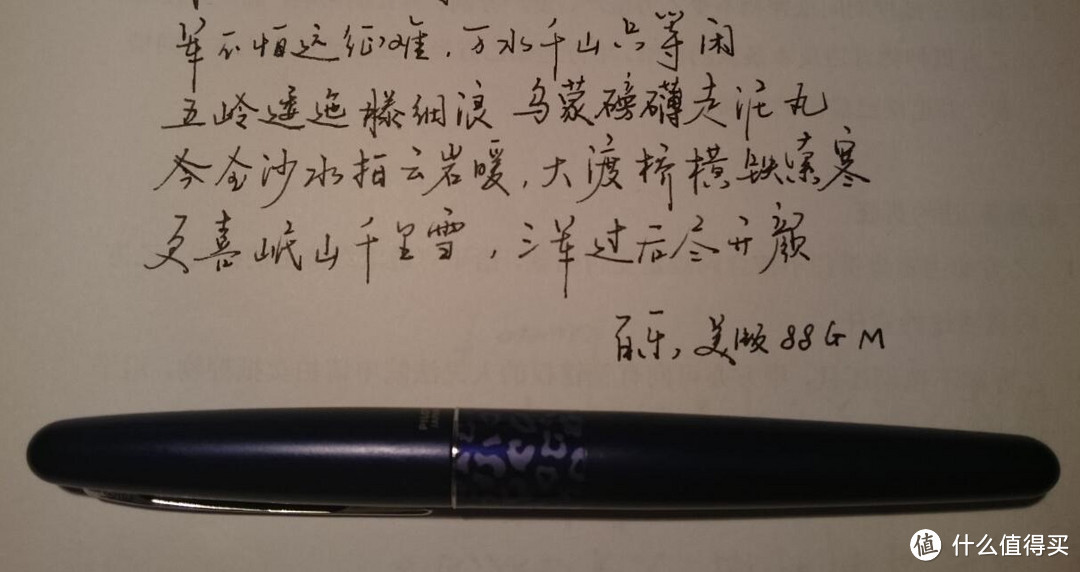 军不怕远征难，万水千山只等闲
五岭逶迤腾细浪 乌蒙磅礴走泥丸
今金沙水拍云岩暖，大渡桥横铁索寒
更喜岷山千里雪，三军过后尽开颜
百乐，美版 88G M
值 什么值得买